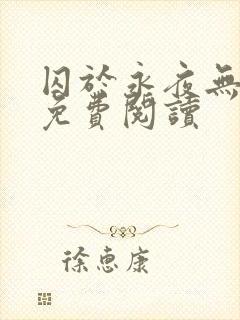 囚於永夜無
免費閱讀
徐惠康